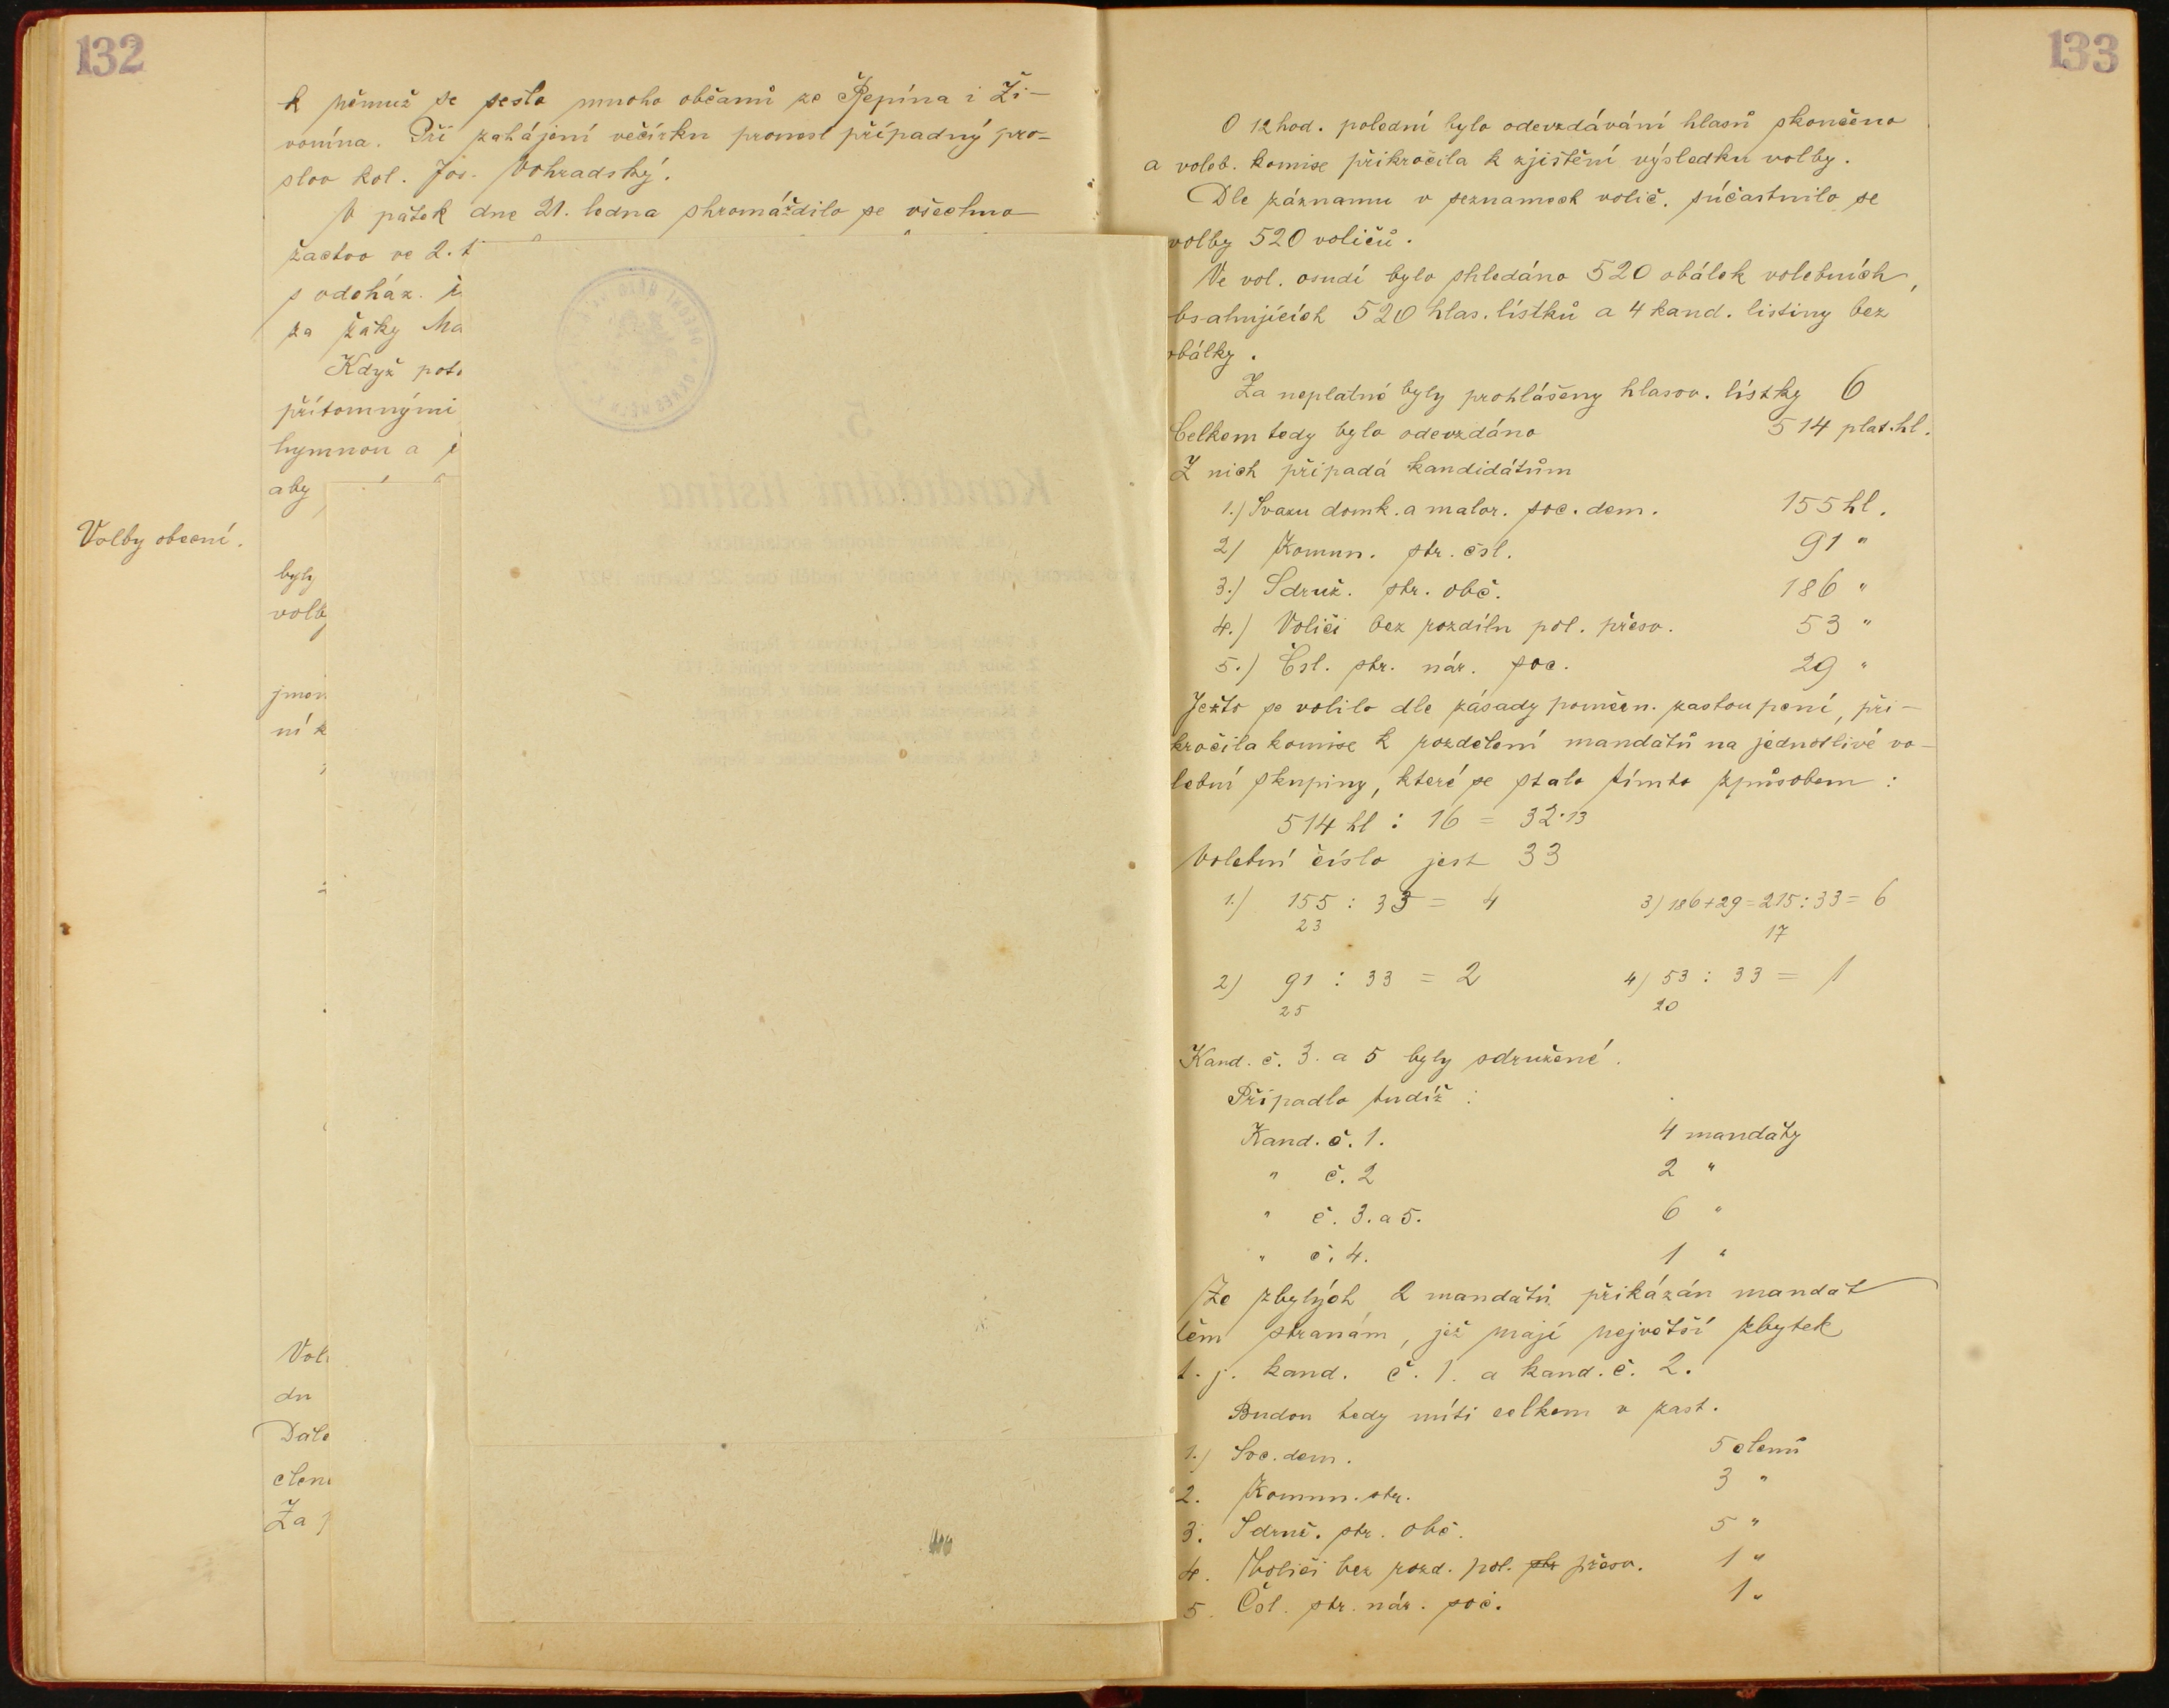 132
k němuž se sešlo mnoho občanů ze Řepína i Ži-
vonína. Při zahájení večírku pronesl případný pro-
slov kol. Jos. Vohradský.
V pátek dne 21. ledna shromáždilo se všechno
žactvo ve 2. t
s odcház.
za žáky Ma
Když poto
přítomnými
hymnou a
aby
Volby obecní.
byly
volby
jmen
ní k
Voli
du
Dále
členi
Za
5
Kandidátní listina
133
O 12 hod. polední bylo odevzdávání hlasů skončeno
a voleb. komise přikročila k zjištění výsledku volby.
Dle záznamu v seznamech volič. súčastnilo se
volby 520 voličů.
Ve vol. osudí bylo shledáno 520 obálek volebních,
bsahujících 520 hlas. lístků a 4 kand. listiny bez
obálky.
Za neplatné byly prohlášeny hlasov. lístky 6
Celkem tedy bylo odevzdáno 514 plat. hl.
Z nich připadá kandidátům
1.) Svazu domk. a malor. soc. dem. 155 hl.
2) Komun. str. čsl. 91 "
3.) Sdruž. str. obč. 186 "
4.) Voliči bez rozdílu pol. přesv. 53 "
5.) Čsl. str. nár. soc. 29 "
Ježto se volilo dle zásady poměrn. zastoupení, při-
kročila komise k rozdělení mandátů na jednotlivé vo-
lební skupiny, které se stalo tímto způsobem :
514 hl : 16 = 32·13
Volební číslo jest 33
1.) 155 : 33 = 4 3) 186+29=215:33= 6
23 17
2) 91 : 33 = 2 4) 53 : 33 = 1
25 20
Kand. č. 3. a 5 byly sdružené.
Připadlo tudíž :
Kand. č. 1. 4 mandáty
" č. 2 2 "
" č. 3. a 5. 6 "
" č. 4. 1 "
Ze zbylých 2 mandátů přikázán mandát
těm stranám, jež mají největší zbytek
t. j. kand. č. 1. a kand. č. 2.
Budou tedy míti celkem v zast.
1.) Soc. dem. 5 členů
2. Komun. str. 3 "
3. Sdruž. str. obč. 5 "
4. Voliči bez rozd. pol. str přesv. 1 "
5. Čsl. str. nár. soc. 1 "